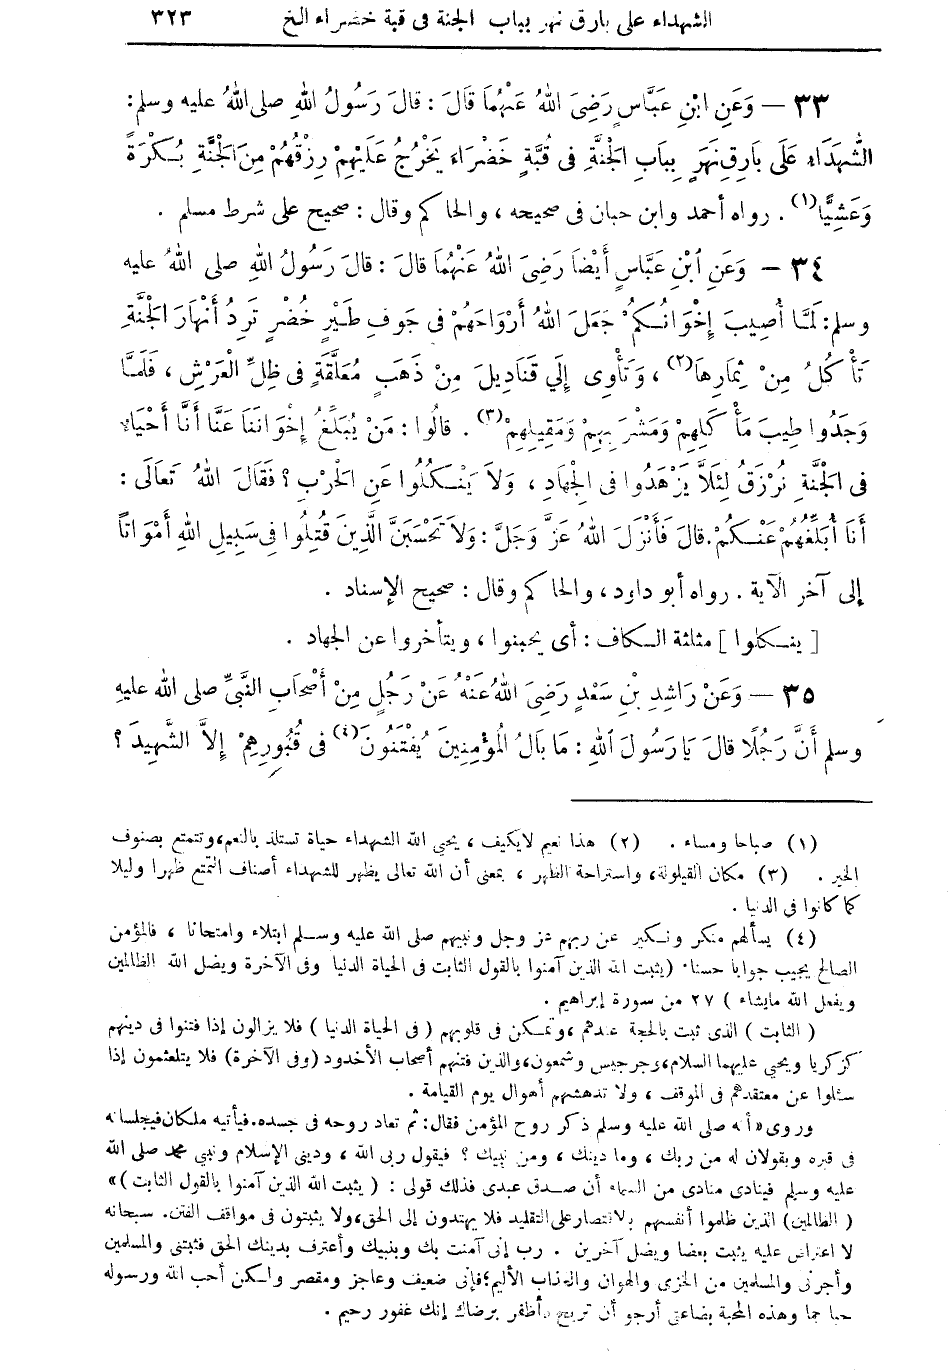 الشهداء على بارق نهر بباب الجنة فى قبة خضراء الخ ٣٢٣
٣٣ — وَعَنِ ابْنِ عَبَّاسٍ رَضِىَ اللهُ عَنْهُمَا قَالَ : قَالَ رَسُولُ اللهِ صلى اللهُ عليه وسلم :
الشُّهَدَاءِ عَلَى بَارِقِ نَهَرٍ بِبَابِ الْجَنَّةِ فِى قُبَّةٍ خَضْرَاءَ يَخْرُجُ عَلَيْهِمْ رِزْقُهُمْ مِنَ الْجَنَّةِ بُكْرَةً
وَعَشِيًّا (١) . رواه أحمد وابن حبان فى صحيحه ، والحاكم وقال : صحيح على شرط مسلم .
٣٤ — وَعَنِ ابْنِ عَبَّاسٍ أَيْضًا رَضِىَ اللهُ عَنْهُمَا قَالَ : قَالَ رَسُولُ اللهِ صلى اللهُ عليه
وسلم : لَمَّا أُصِيبَ إِخْوَانُكُمْ جَعَلَ اللهُ أَرْوَاحَهُمْ فى جَوفِ طَيْرٍ خُضْرٍ تَرِدُ أَنْهَارَ الْجَنَّةِ
تَأْكُلُ مِنْ ثِمَارِهَا (٢) ، وَتَأْوِى إِلَي قَنَادِيلَ مِنْ ذَهَبٍ مُعَلَّقَةٍ فى ظِلِّ الْعَرْشِ ، فَلَمَّا
وَجَدُوا طِيبَ مَأْكَلِهِمْ وَمَشْرَبِهِمْ وَمَقِيلِهِمْ (٣) . قالُوا : مَنْ يُبَلِّغُ إِخْوَانَنَا عَنَّا أَنَّا أَحْيَاءٌ
فى الْجَنَّةِ نُرْزَقُ لِئَلَّا يَزْهَدُوا فى الْجِهَادِ ، وَلَا يَنْكُلُوا عَنِ الْحَرْبِ ؟ فَقَالَ اللهُ تَعَالَى :
أَنَا أُبَلِّغُهُمْ عَنْكُمْ . قَالَ فَأَنْزَلَ اللهُ عَزَّ وَجَلَّ : وَلَا تَحْسَبَنَّ الَّذِينَ قُتِلُوا فى سَبِيلِ اللهِ أَمْوَاتاً
إلى آخر الآية . رواه أبو داود ، والحاكم وقال : صحيح الإسناد .
[ ينكلوا ] مثلثة الكاف : أى يجبنوا ، ويتأخروا عن الجهاد .
٣٥ — وَعَنْ رَاشِدِ بْنِ سَعْدٍ رَضِىَ اللهُ عَنْهُ عَنْ رَجُلٍ مِنْ أَصْحَابِ النَّبِيِّ صلى الله عليه
وسلم أَنَّ رَجُلًا قَالَ يَا رَسُولَ اللهِ : مَا بَالُ الْمُؤْمِنِينَ يُفْتَنُونَ (٤) فى قُبُورِهِمْ إِلاَّ الشَّهِيدَ ؟
(١) صباحا ومساء . (٢) هذا نعيم لايكيف ، يحيي الله الشهداء حياة تستلذ بالنعم ، وتتمتع بصنوف
الخير . (٣) مكان القيلولة ، واستراحة الظهر ، بمعنى أن الله تعالى يظهر للشهداء أصناف التمتع ظهرا وليلا
كما كانوا فى الدنيا .
(٤) يسألهم منكر ونكير عن ربهم عز وجل ونبيهم صلى الله عليه وسلم ابتلاء وامتحانا ، فالمؤمن
الصالح يجيب جوابا حسنا . (يثبت الله الذين آمنوا بالقول الثابت فى الحياة الدنيا وفى الآخرة ويضل الله الظالمين
ويفعل الله مايشاء ) ٢٧ من سورة إبراهيم .
( الثابت ) الذى ثبت بالحجة عندهم ، وتمكن فى قلوبهم ( فى الحياة الدنيا ) فلا يزالون إذا فتنوا فى دينهم
كزكريا ويحيي عليهما السلام ، وجرجيس وشمعون ، والذين فتنهم أصحاب الأخدود (وفى الآخرة) فلا يتلعثمون إذا
سئلوا عن معتقدهم فى الموقف ، ولا تدهشهم أهوال يوم القيامة .
وروى « أنه صلى الله عليه وسلم ذكر روح المؤمن فقال : ثم تعاد روحه فى جسده . فيأتيه ملكان فيجلسانه
فى قبره ويقولان له من ربك ، وما دينك ، ومن نبيك ؟ فيقول ربى الله ، ودينى الإسلام ونبيي محمد صلى الله
عليه وسلم فينادى منادى من السماء أن صدق عبدى فذلك قولى : ( يثبت الله الذين آمنوا بالقول الثابت ) »
( الظالمين ) الذين ظلموا أنفسهم بالانتصار على التقليد فلا يهتدون إلى الحق ، ولا يثبتون فى مواقف الفتن . سبحانه
لا اعتراض عليه يثبت بعضا ويضل آخرين . رب إنى آمنت بك وبنبيك وأعترف بدينك الحق فثبتنى والمسلمين
وأجرنى والمسلمين من الخزى والهوان والعذاب الأليم ؛ فإنى ضعيف وعاجز ومقصر ولكن أحب الله ورسوله
حبا جما وهذه المحبة بضاعتى أرجو أن تربح وأظفر برضاك إنك غفور رحيم .